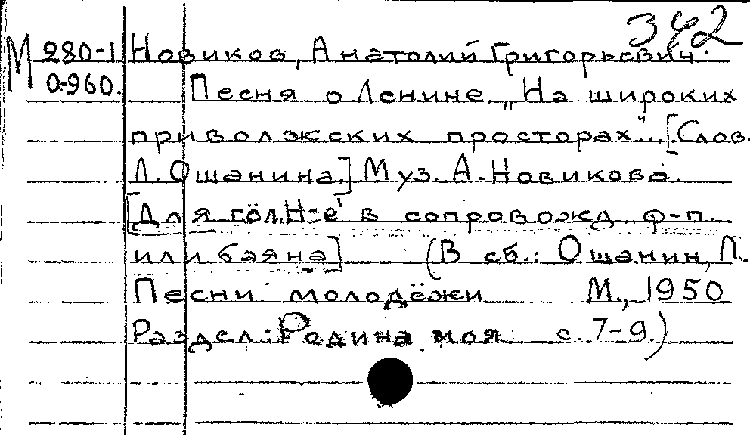 342
М 280-1 Новиков, Анатолий Григорьевич.
0-960. Песня о Ленине „На широких
приволжских просторах". [Слов.
Л. Ошанина.] Муз. А. Новикова.
[Для гол. Н-е' в сопровожд. ф-п.
или баяна] (В сб.: Ошанин, Л.
Песни молодёжи М., 1950
Раздел: Родина моя с. 7-9.)